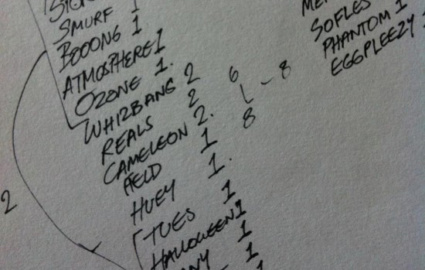 SMURF 1
BOOONG 1
ATMOSPHERE 1
OZONE 1.
WHIRBANG 2
REALS 2
CAMELEON 2.
AELD 1
HUEY 1.
TUES 1
HALLOWEEN 1
1
6
- 8
8
2
SOFLES
PHANTOM 1
EGGPLEEZY